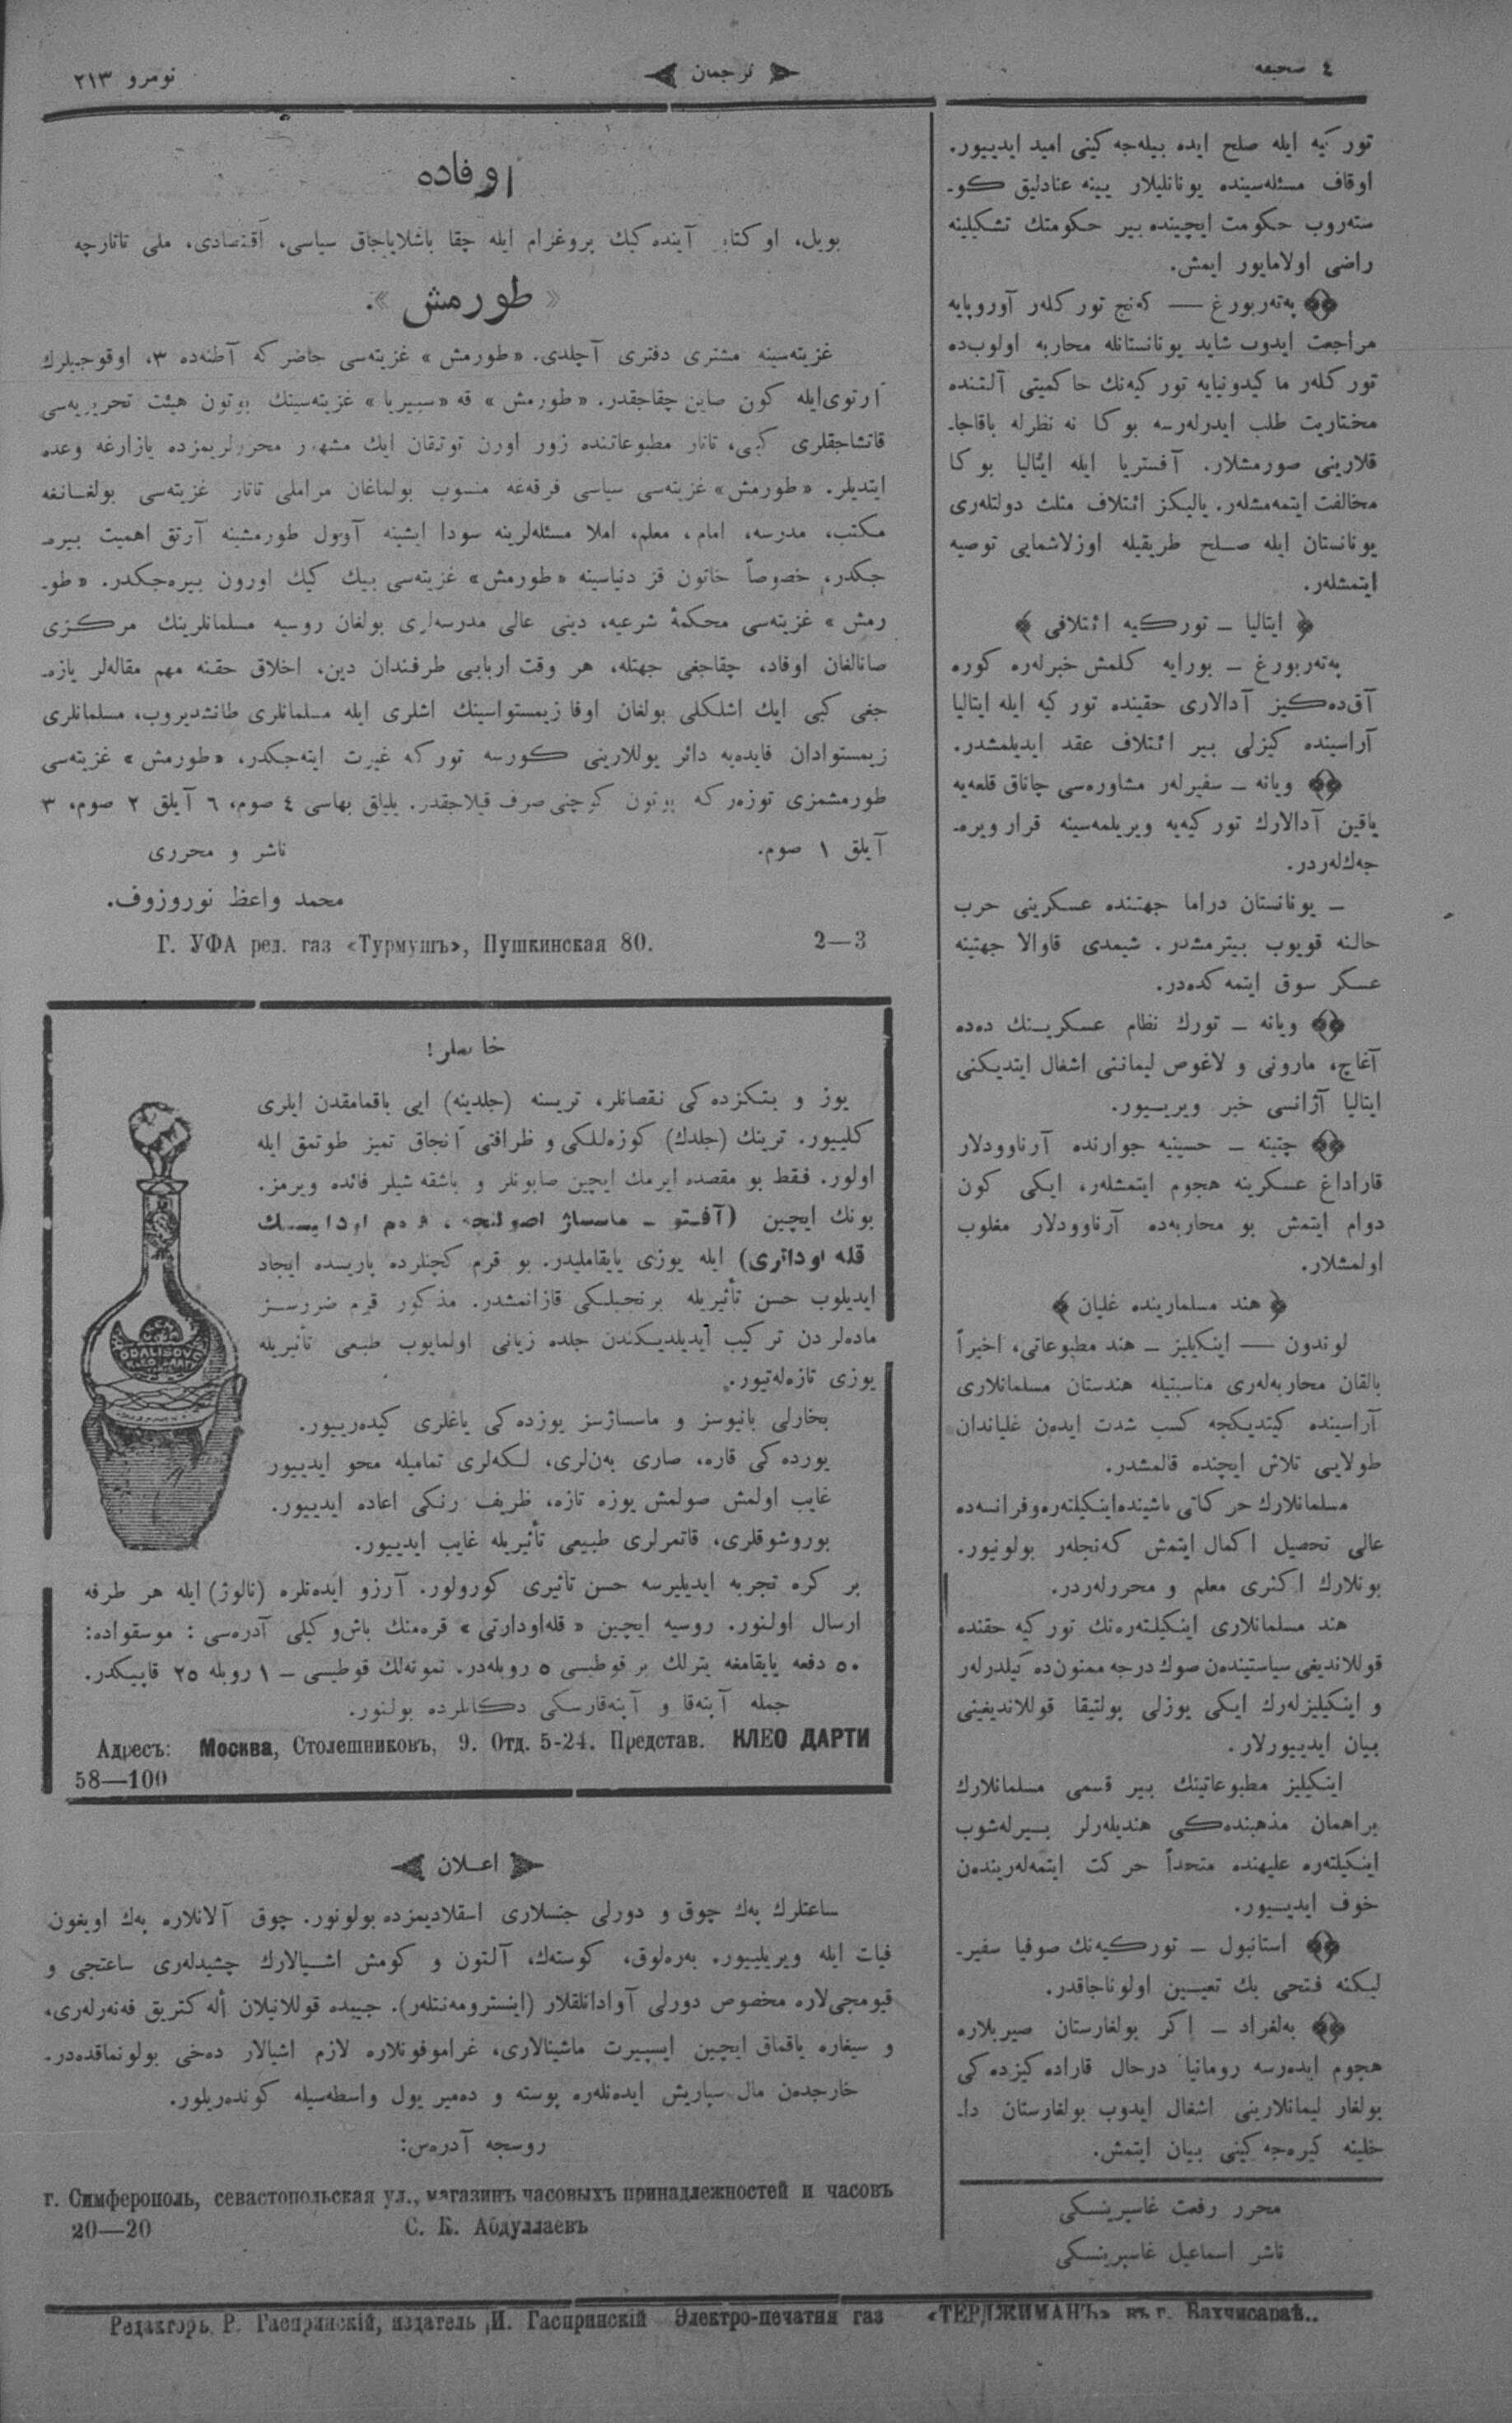 ٤ صحيفه
ترجمان
نومرو ٢١٣
توركيه ايله صلح ايده بيله‌جه كينى اميد ايدييور.
اوقاف مسئله‌سينده يونانليلار يينه عنادليق كو‌ـ
سته‌روب حكومت ايچينده بير حكومتك تشكيلينه
راضى اولامايور ايمش.
په‌ته‌ربورغ — كه‌نج توركله‌ر آوروپايه
مراجعت ايدوب شايد يونانستانله محاربه اولوب‌ده
توركله‌ر ماكيدونيايه توركيه‌نك حاكميتى آلتنده
مختاريت طلب ايدرله‌رسه بوكا نه نظرله باقاجا‌ـ
قلارينى صورمشلار. آفستريا ايله ايتاليا بوكا
مخالفت ايتمه‌مشله‌ر. يالكز ائتلاف مثلث دولتله‌رى
يونانستان ايله صلح طريقيله اوزلاشمايى توصيه
ايتمشله‌ر.
﴿ ايتاليا ـ توركيه ائتلافى ﴾
په‌ته‌ربورغ ـ بورايه كلمش خبرله‌ره كوره
آق‌ده‌كيز آدالارى حقينده توركيه ايله ايتاليا
آراسينده كيزلى بير ائتلاف عقد ايديلمشدر.
ويانه ـ سفيرله‌ر مشاوره‌سى چاناق قلعه‌يه
ياقين آدالارك توركيه‌يه ويريلمه‌سينه قرار ويره‌ـ
جه‌كله‌ردر.
ـ يونانستان دراما جهتنده عسكرينى حرب
حالنه قويوب بيترمشدر. شيمدى قاوالا جهتينه
عسكر سوق ايتمه‌كده‌در.
ويانه ـ تورك نظام عسكرينك ده‌ده
آغاج، مارونى و لاغوص ليماننى اشغال ايتديكنى
ايتاليا آژانسى خبر ويرييور.
چتينه ـ حسينيه جوارنده آرناوودلار
قاراداغ عسكرينه هجوم ايتمشله‌ر، ايكى كون
دوام ايتمش بو محاربه‌ده آرناوودلار مغلوب
اولمشلار.
﴿ هند مسلمارينده غليان ﴾
لوندون — اينكيليز ـ هند مطبوعاتى، اخيراً
بالقان محاربه‌له‌رى مناسبتيله هندستان مسلمانلارى
آراسينده كيتديكجه كسب شدت ايده‌ن غلياندان
طولايى تلاش ايچنده قالمشدر.
مسلمانلارك حركاتى باشينده اينكيلته‌ره و فرانسه‌ده
عالى تحصيل اكمال ايتمش كه‌نجله‌ر بولونيور.
بونلارك اكثرى معلم و محررله‌ردر.
هند مسلمانلارى اينكيلته‌ره‌نك توركيه حقنده
قوللانديغى سياستينده‌ن صوك درجه ممنون‌ده كيلدرله‌ر
و اينكيليزله‌رك ايكى يوزلى پولتيقا قوللانديغينى
بيان ايدييورلار.
اينكيليز مطبوعاتينك بير قسمى مسلمانلارك
براهمان مذهبنده‌كى هنديله‌رلر بيرله‌شوب
اينكيلته‌ره عليهنده متحداً حركت ايتمه‌له‌رينده‌ن
خوف ايدييور.
استانبول ـ توركيه‌نك صوفيا سفير‌ـ
ليكنه فتحى بك تعيين اولوناجاقدر.
به‌لغراد ـ اكر بولغارستان صيربلاره
هجوم ايده‌رسه رومانيا درحال قاراده‌كيزده‌كى
بولغار ليمانلارينى اشغال ايدوب بولغارستان دا‌ـ
خلينه كيره‌جه‌كينى بيان ايتمش.
محرر رفعت غاسپرينسكى
ناشر اسماعيل غاسپرينسكى
اوفاده
بويل، اوكتابر آينده كيك پروغرام ايله چقا باشلاياجاق سياسى، اقتصادى، ملى تاتارچه
« طورمش »
غزيته‌سينه مشترى دفترى آچلدى. «طورمش» غزيته‌سى حاضركه آطنه‌ده ٣، اوقوجيلرك
آرتوى‌ايله كون صاين چقاجقدر. «طورمش» قه «سيبيريا» غزيته‌سينك بوتون هيئت تحريريه‌سى
قاتشاجقلرى كبى، تاتار مطبوعاتنده زور اورن توتقان ايك مشهور محررلريمزده يازارغه وعده
ايتديلر. «طورمش» غزيته‌سى سياسى فرقه‌غه منسوب بولماغان مراملى تاتار غزيته‌سى بولغانغه
مكتب، مدرسه، امام، معلم، املا مسئله‌لرينه سودا ايشينه آوول طورمشينه آرتق اهميت بيره‌ـ
جكدر، خصوصاً خاتون قز دنياسينه «طورمش» غزيته‌سى بيك كيك اورون بيره‌جكدر. «طو‌ـ
رمش» غزيته‌سى محكمۀ شرعيه، دينى عالى مدرسه‌لرى بولغان روسيه مسلمانلرينك مركزى
صانالغان اوفاد، چقاجغى جهتله، هر وقت اربابى طرفندان دين، اخلاق حقنه مهم مقاله‌لر يازه‌ـ
جغى كبى ايك اشلكلى بولغان اوفا زيمستواسينك اشلرى ايله مسلمانلرى طانشديروب، مسلمانلرى
زيمستوادان فايده‌يه دائر يوللارينى كورسه توركه غيرت ايته‌جكدر، «طورمش» غزيته‌سى
طورمشمزى توزه‌ركه بوتون كوچنى صرف قيلاجقدر. يللق بهاسى ٤ صوم، ٦ آيلق ٢ صوم، ٣
آيلق ١ صوم.
ناشر و محررى
محمد واعظ نوروزوف.
Г. УФА ред. газ «Турмушъ», Пушкинская 80. 2—3
خانملر!
يوز و بتكزده‌كى نقصانلر، تريسنه (جلدينه) ايى باقمامقدن ايلرى
كلييور. ترينك (جلدك) كوزه‌للكى و ظرافتى آنجاق تميز طوتمق ايله
اولور. فقط بو مقصده ايرمك ايچين صابونلر و باشقه شيلر فائده ويرمز.
بونك ايچين (آفتو ـ ماسساژ اصولنجه،
قله‌اودارتى) ايله يوزى يايقامليدر. بو قرم كچنلرده پاريسده ايجاد
ايديلوب حسن تأثيريله برنجيلكى قازانمشدر. مذكور قرم ضررسز
ماده‌لردن تركيب ايديلديكندن جلده زيانى اولمايوب طبعى تأثيريله
يوزى تازه‌له‌تيور.
بخارلى بانيوسز و ماسساژسز يوزده‌كى ياغلرى كيده‌رييور.
يورده‌كى قاره، صارى به‌ن‌لرى، لكه‌لرى تماميله محو ايدييور
غايب اولمش صولمش يوزه تازه، ظريف رنكى اعاده ايدييور.
بوروشوقلرى، قاتمرلرى طبيعى تأثيريله غايب ايدييور.
بر كره تجربه ايديليرسه حسن تأثيرى كورولور. آرزو ايده‌نلره (نالوژ) ايله هر طرفه
ارسال اولنور. روسيه ايچين «قله‌اودارتى» قره‌منك باش‌وكيلى آدره‌سى: موسقواده:
٥٠ دفعه يايقامغه يترلك بر قوطيسى ٥ روبله‌در. نمونه‌لك قوطيسى ـ ١ روبله ٢٥ قاپيكدر.
جمله آپته‌قا و آپته‌قارسكى دكانلرده بولنور.
Адресъ: Москва, Столешниковъ, 9. Отд. 5-24. Представ. КЛЕО ДАРТИ
58—100
ODALISQVE
اعلان
ساعتلرك په‌ك چوق و دورلى جنسلارى اسقلاديمزده بولونور. چوق آلانلاره په‌ك اويغون
فيات ايله ويريلييور. به‌ره‌لوق، كوسته‌ك، آلتون و كومش اشيالارك چشيدله‌رى ساعتجى و
قيومجى‌لاره مخصوص دورلى آوادانلقلار (اينسترومه‌نتله‌ر). جيبده قوللانيلان أله‌كتريق فه‌نه‌رله‌رى،
و سيغاره ياقماق ايچين ايسپيرت ماشينالارى، غراموفونلاره لازم اشيالار ده‌خى بولونماقده‌در.
خارجده‌ن مال سپاريش ايده‌نله‌ره پوسته و ده‌مير يول واسطه‌سيله كونده‌ريلور.
روسجه آدره‌س:
г. Симферополь, севастопольская ул., магазинъ часовыхъ принадлежностей и часовъ
20—20 С. Б. Абдуллаевъ
Редакторъ Р. Гаспринскій, издатель И. Гаспринскій Электро-печатня газ «ТЕРДЖИМАНЪ» въ г. Бахчисараѣ..